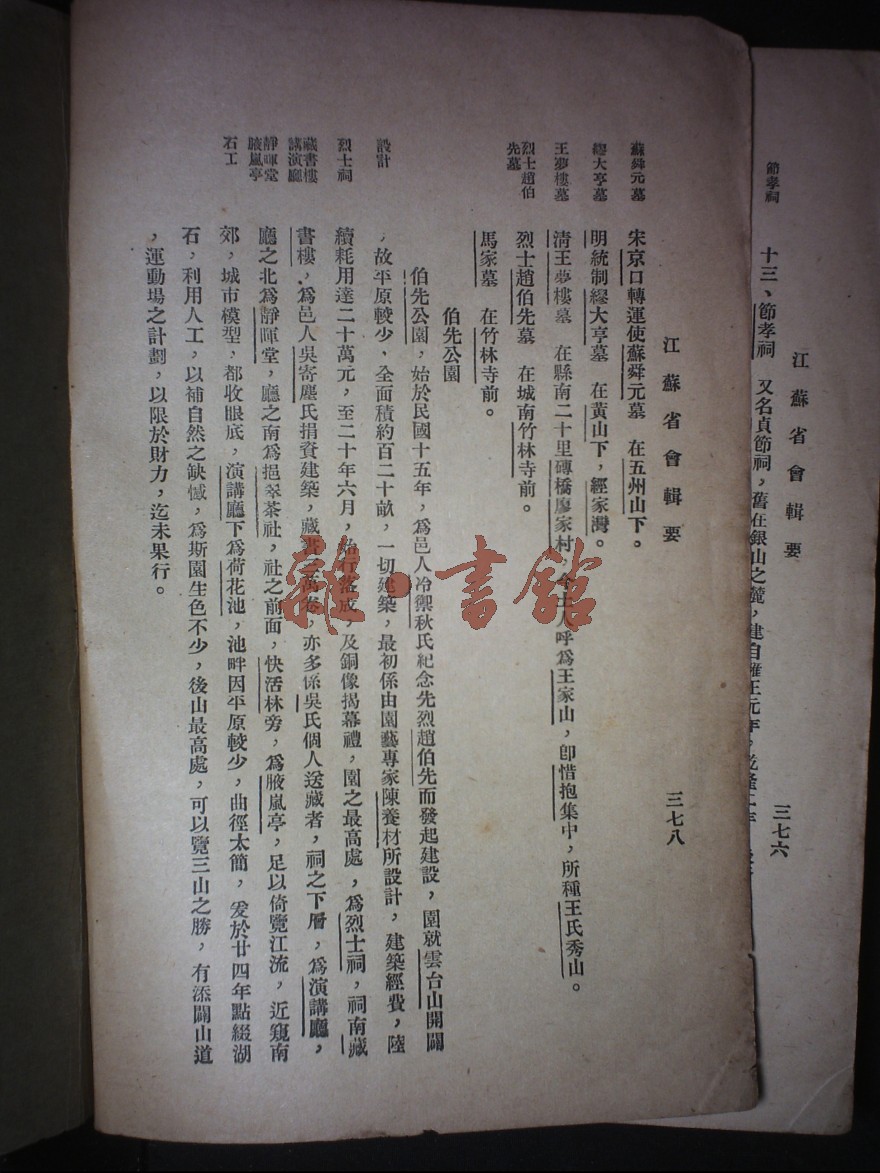 江蘇省會輯要
三七六
節孝祠
十三、節孝祠　又名貞節祠，舊在銀山之麓，建自雍正元年，
江蘇省會輯要
三七八
蘇舜元墓
宋京口轉運使蘇舜元墓　在五州山下。
繆大亨墓
明統制繆大亨墓　在黃山下，經家灣。
王夢樓墓
清王夢樓墓　在縣南二十里磚橋廖家村，今土人呼爲王家山，卽惜抱集中，所種王氏秀山。
烈士趙伯先墓
烈士趙伯先墓　在城南竹林寺前。
馬家墓　在竹林寺前。
伯先公園
伯先公園，始於民國十五年，爲邑人冷禦秋氏紀念先烈趙伯先而發起建設，園就雲台山開闢
設計
，故平原較少，全面積約百二十畝，一切建築，最初係由園藝專家陳養材所設計，建築經費，陸
烈士祠
續耗用達二十萬元，至二十年六月，始行落成，及銅像揭幕禮，園之最高處，爲烈士祠，祠南藏
藏書樓
講演廳
書樓，爲邑人吳寄塵氏捐資建築，藏書三萬卷，亦多係吳氏個人送藏者，祠之下層，爲演講廳，
靜暉堂
腋嵐亭
廳之北爲靜暉堂，廳之南爲挹翠茶社，社之前面，快活林旁，爲腋嵐亭，足以倚覽江流，近窺南
石工
郊，城市模型，都收眼底，演講廳下爲荷花池，池畔因平原較少，曲徑太簡，爰於廿四年點綴湖
石，利用人工，以補自然之缺憾，爲斯園生色不少，後山最高處，可以覽三山之勝，有添闢山道
，運動場之計劃，以限於財力，迄未果行。
雜·書館